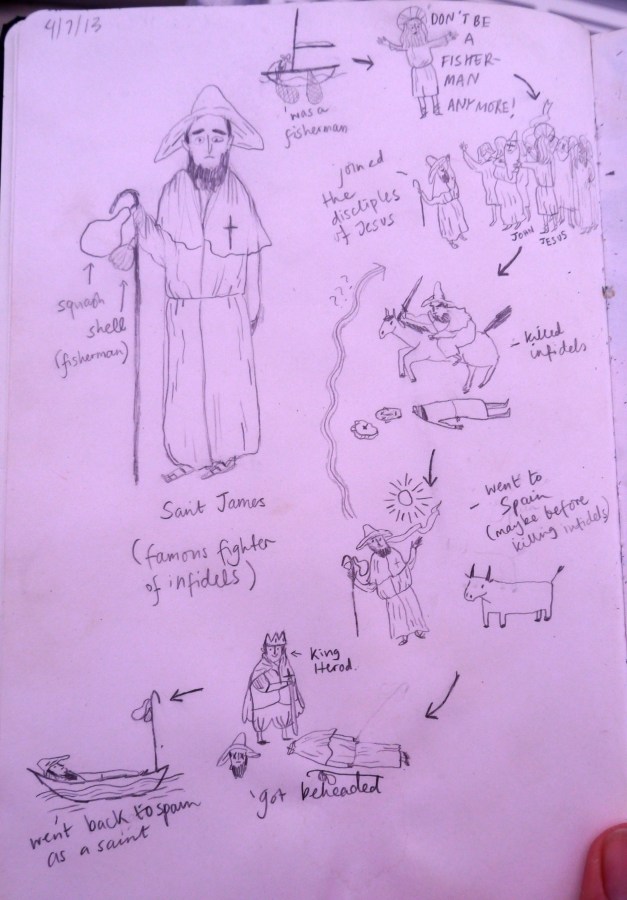 4/7/13
was a
fisherman
DON'T BE
A
FISHER-
MAN
ANYMORE!
joined
the
disciples
of Jesus
JOHN
JESUS
squash
shell
(fisherman)
???
- killed
infidels
Saint James
(famous fighter
of infidels)
- went to
Spain
(maybe before
killing infidels)
King
Herod.
got beheaded
went back to spain
as a saint